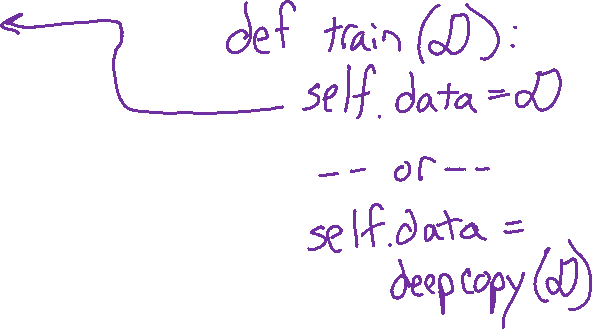 def train(D):
self.data = D
-- or --
self.data =
deepcopy(D)